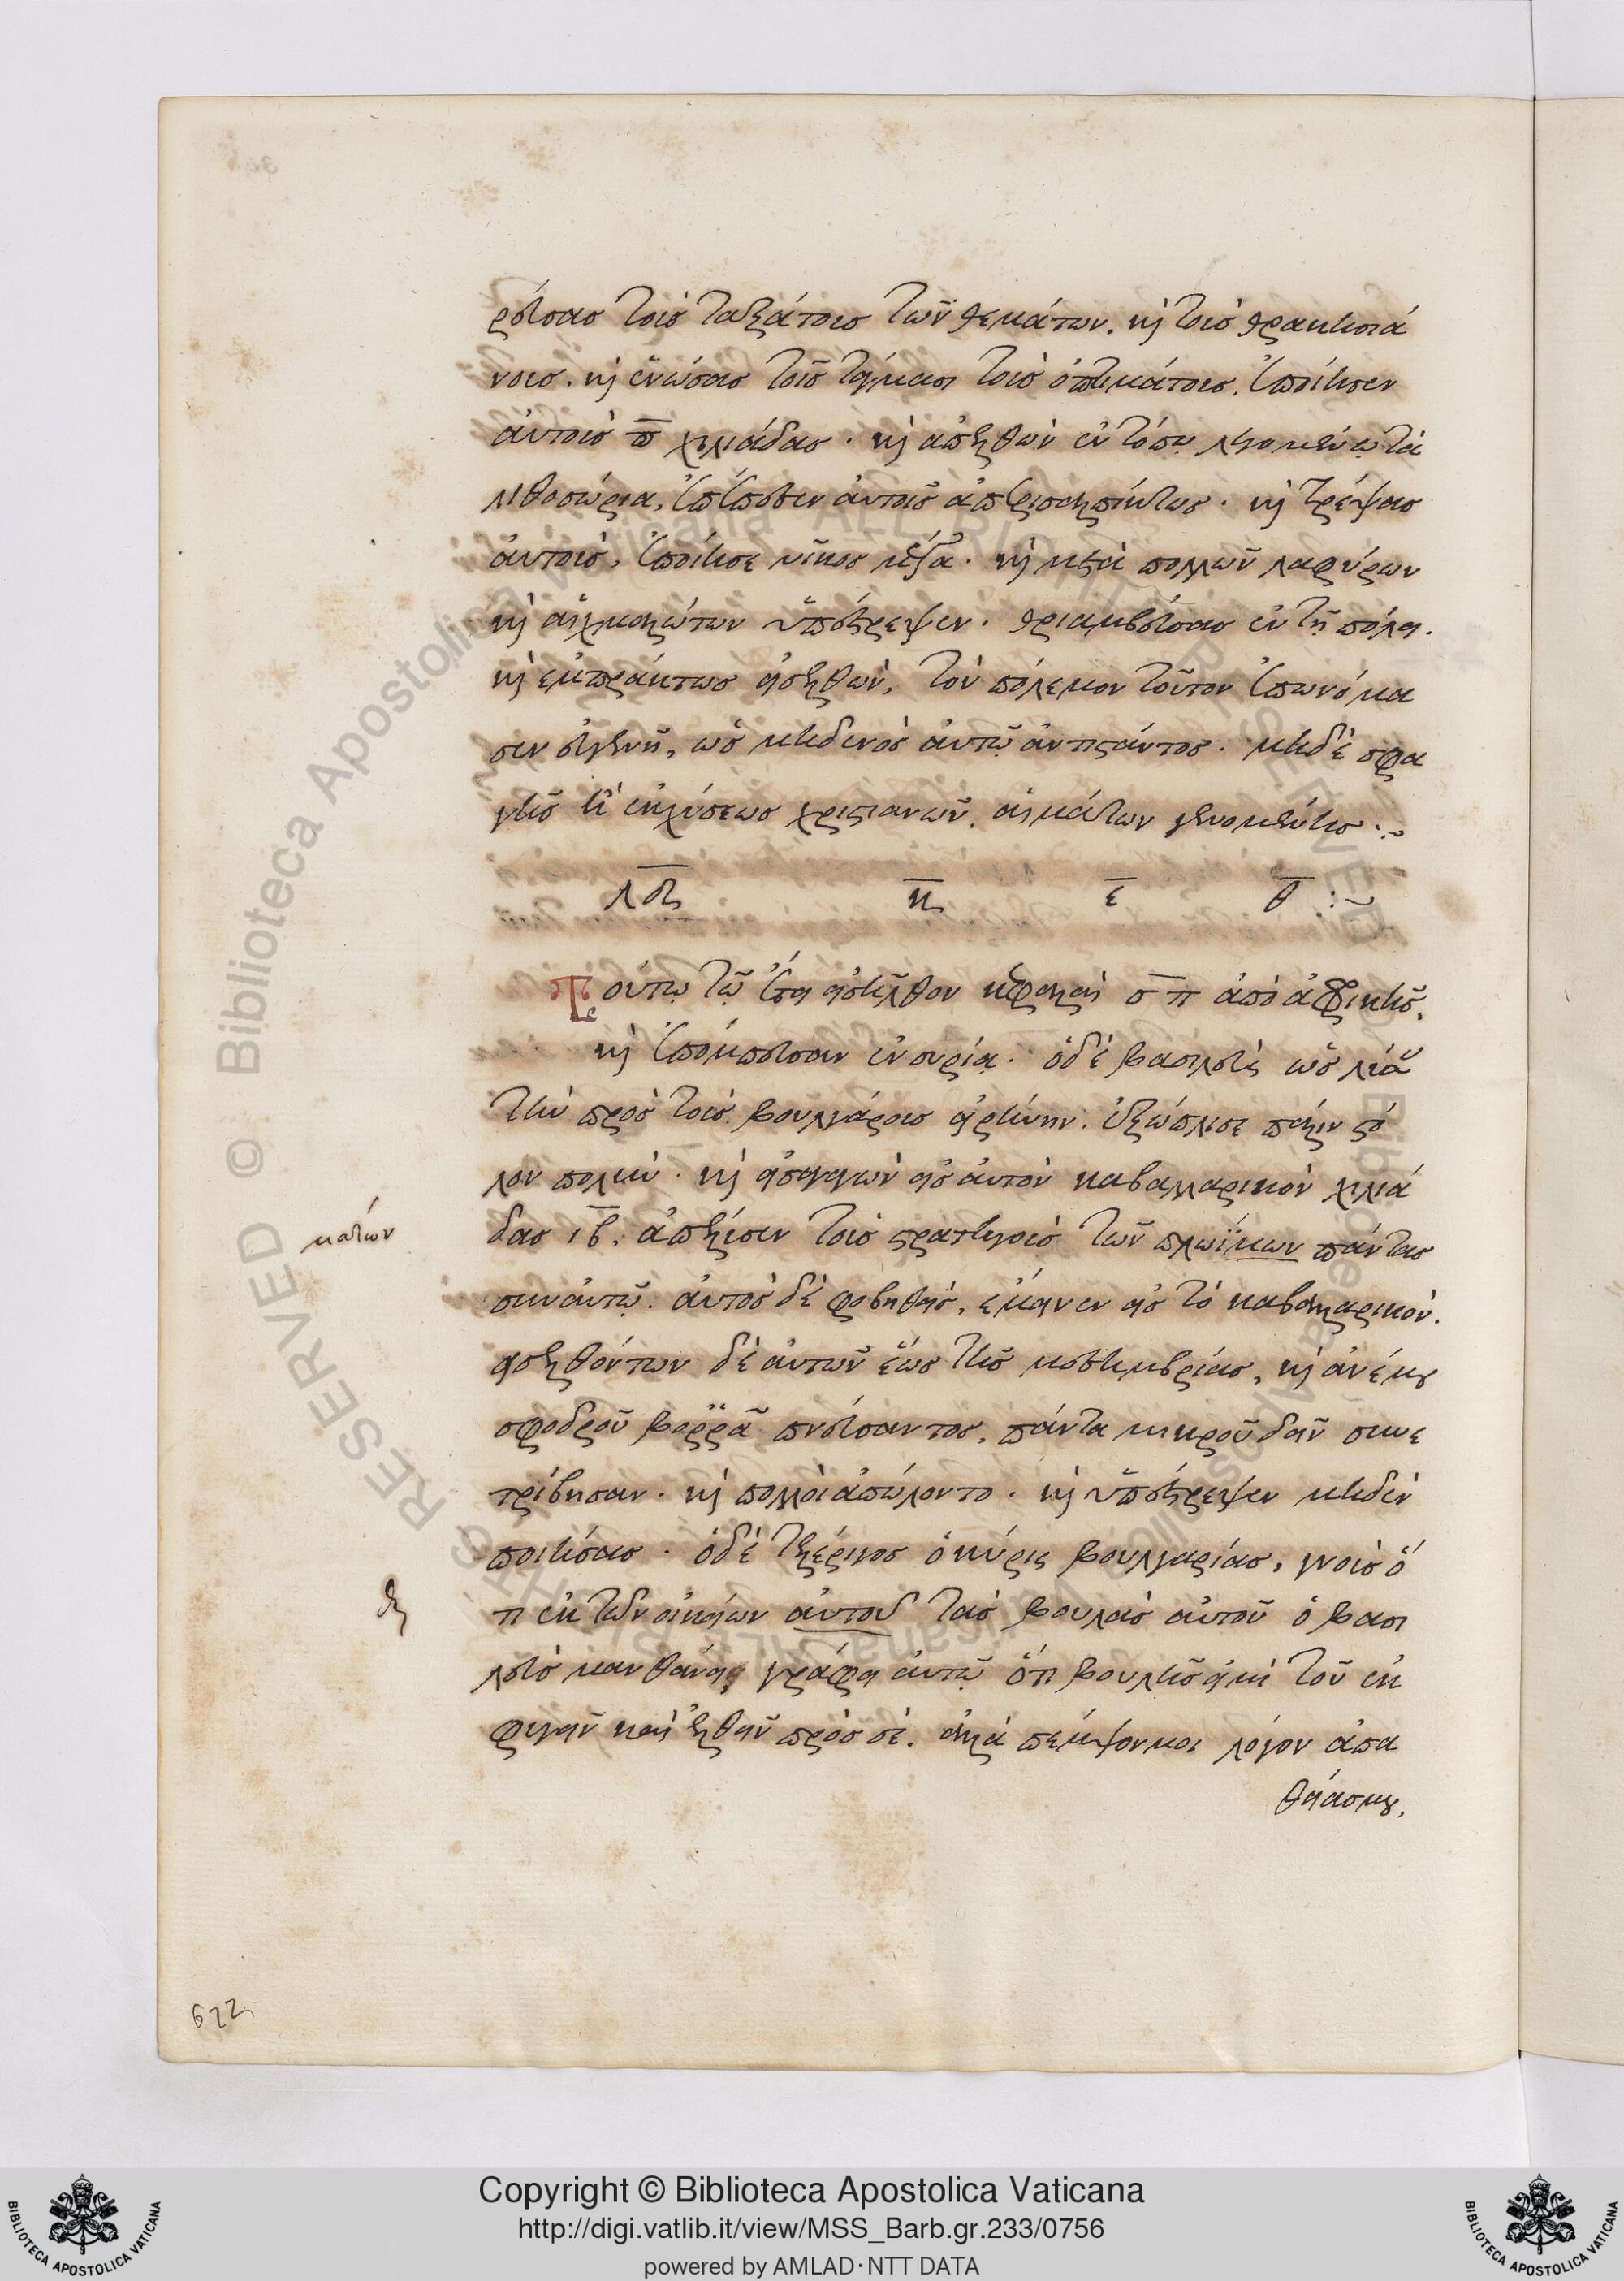 ρεύσας τοὺς ταξάτους τῶν θεμάτων. καὶ τοὺς θρακησιά
νους. καὶ ἑνώσας τοῖς τάγμασι τοὺς ὀπτιμάτους. ἐποίησεν
αὐτοὺς π χιλιάδας. καὶ ἀπελθὼν ἐν τόπῳ λεγομένῳ τὰ
λιθοσώρια, ἐπέπεσεν αὐτοῖς ἀπερισαλπίκτως. καὶ τρέψας
αὐτοὺς, ἐποίησε νῖκος μέγα. καὶ μετὰ πολλῶν λαφύρων
καὶ αἰχμαλώτων ὑπέστρεψεν. θριαμβεύσας ἐν τῇ πόλει.
καὶ ἐμπράκτως εἰσελθὼν, τὸν πόλεμον τοῦτον ἐπωνόμα
σεν εὐγενῆ, ὡς μηδενὸς αὐτῷ ἀντιστάντος. μηδὲ σφα
γῆς ἢ ἐκχύσεως χριστιανῶν αἱμάτων γενομένης.
λδ κ ε θ
Τούτῳ τῷ ἔτει εἰσῆλθον κεφαλαὶ σπ ἀπὸ ἀφρικῆς.
καὶ ἐπόμπευσαν ἐν συρίᾳ. ὁ δὲ βασιλεὺς ὡς λύων
τὴν πρὸς τοὺς βουλγάρους εἰρήνην. ἐξώπλισε πάλιν στό
λον πολὺν. καὶ εἰσαγαγὼν εἰς αὐτὸν καβαλλαρικὸν χιλιά
δας ιβ, ἀπέλυσεν τοὺς στρατηγοὺς τῶν πλωΐμων πάντας
ματων
σὺν αὐτῷ. αὐτὸς δὲ φοβηθεὶς, ἔμεινεν εἰς τὸ καβαλλαρικόν.
εἰσελθόντων δὲ αὐτῶν ἕως τῆς μεσημβρίας, καὶ ἀνέμου
σφοδροῦ βορρᾶ πνεύσαντος, πάντα μικροῦ δεῖν συνε
τρίβησαν. καὶ πολλοὶ ἀπώλοντο. καὶ ὑπέστρεψεν μηδὲν
ποιήσας. ὁ δὲ τελέριγος ὁ κύρις βουλγαρίας, γνοὺς ὅ
τι ἐκ τῶν οἰκείων αὐτοῦ τὰς βουλὰς αὐτοῦ ὁ βασι
λεὺς μανθάνει, γράφει αὐτῷ ὅτι βουλῆς εἰμὶ τοῦ ἐκ
φυγεῖν καὶ ἐλθεῖν πρὸς σὲ. ἀλλὰ πέμψον μοι λόγον ἀπα
θείας μου,
622
Copyright © Biblioteca Apostolica Vaticana
http://digi.vatlib.it/view/MSS_Barb.gr.233/0756
powered by AMLAD·NTT DATA
BIBLIOTECA APOSTOLICA VATICANA
BIBLIOTECA APOSTOLICA VATICANA